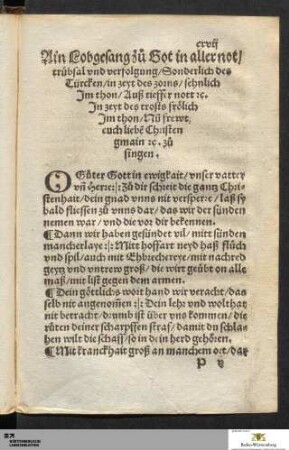 cxvij
Ain Lobgesang zů Got in aller not/
trübsal vnd verfolgung/Sonderlich des
Türcken/in zeyt des zorns/sehnlich
Im thon/Auß tieffer nott ⁊c.
In zeyt des trosts frölich
Im thon/Nů frewt,
euch liebē Christen
gmain ⁊c. zů
singen.
O Güter Gott in ewigkait/vnser vatter
vñ Herre:|: Zů dir schreit die gantz Chri-
stenhait/dein gnad vnns nit versperre/laß sy
bald fliessen zů vnns dar/das wir der sünden
nemen war/vnd die vor dir bekennen.
¶ Dann wir haben gesündet vil/mitt sünden
mancherlaye:|: Mitt hoffart neyd haß flůch
vnd spil/auch mit Ehbrechereye/mit nachred
geytz vnd vntrew groß/die wirt geübt on alle
maß/mit list gegen dem armen.
¶ Dein götlichs wort hand wir veracht/das
selb nit angenom̃en:|: Dein lehr vnd wolthat
nit betracht/drumb ist über vns kommen/die
růten deiner scharpffen straf/damit du schla-
hen wilt die schaff/so in dein herd gehören.
¶ Mit kranckhait groß an manchem ort/dar
P ij
Baden-Württemberg